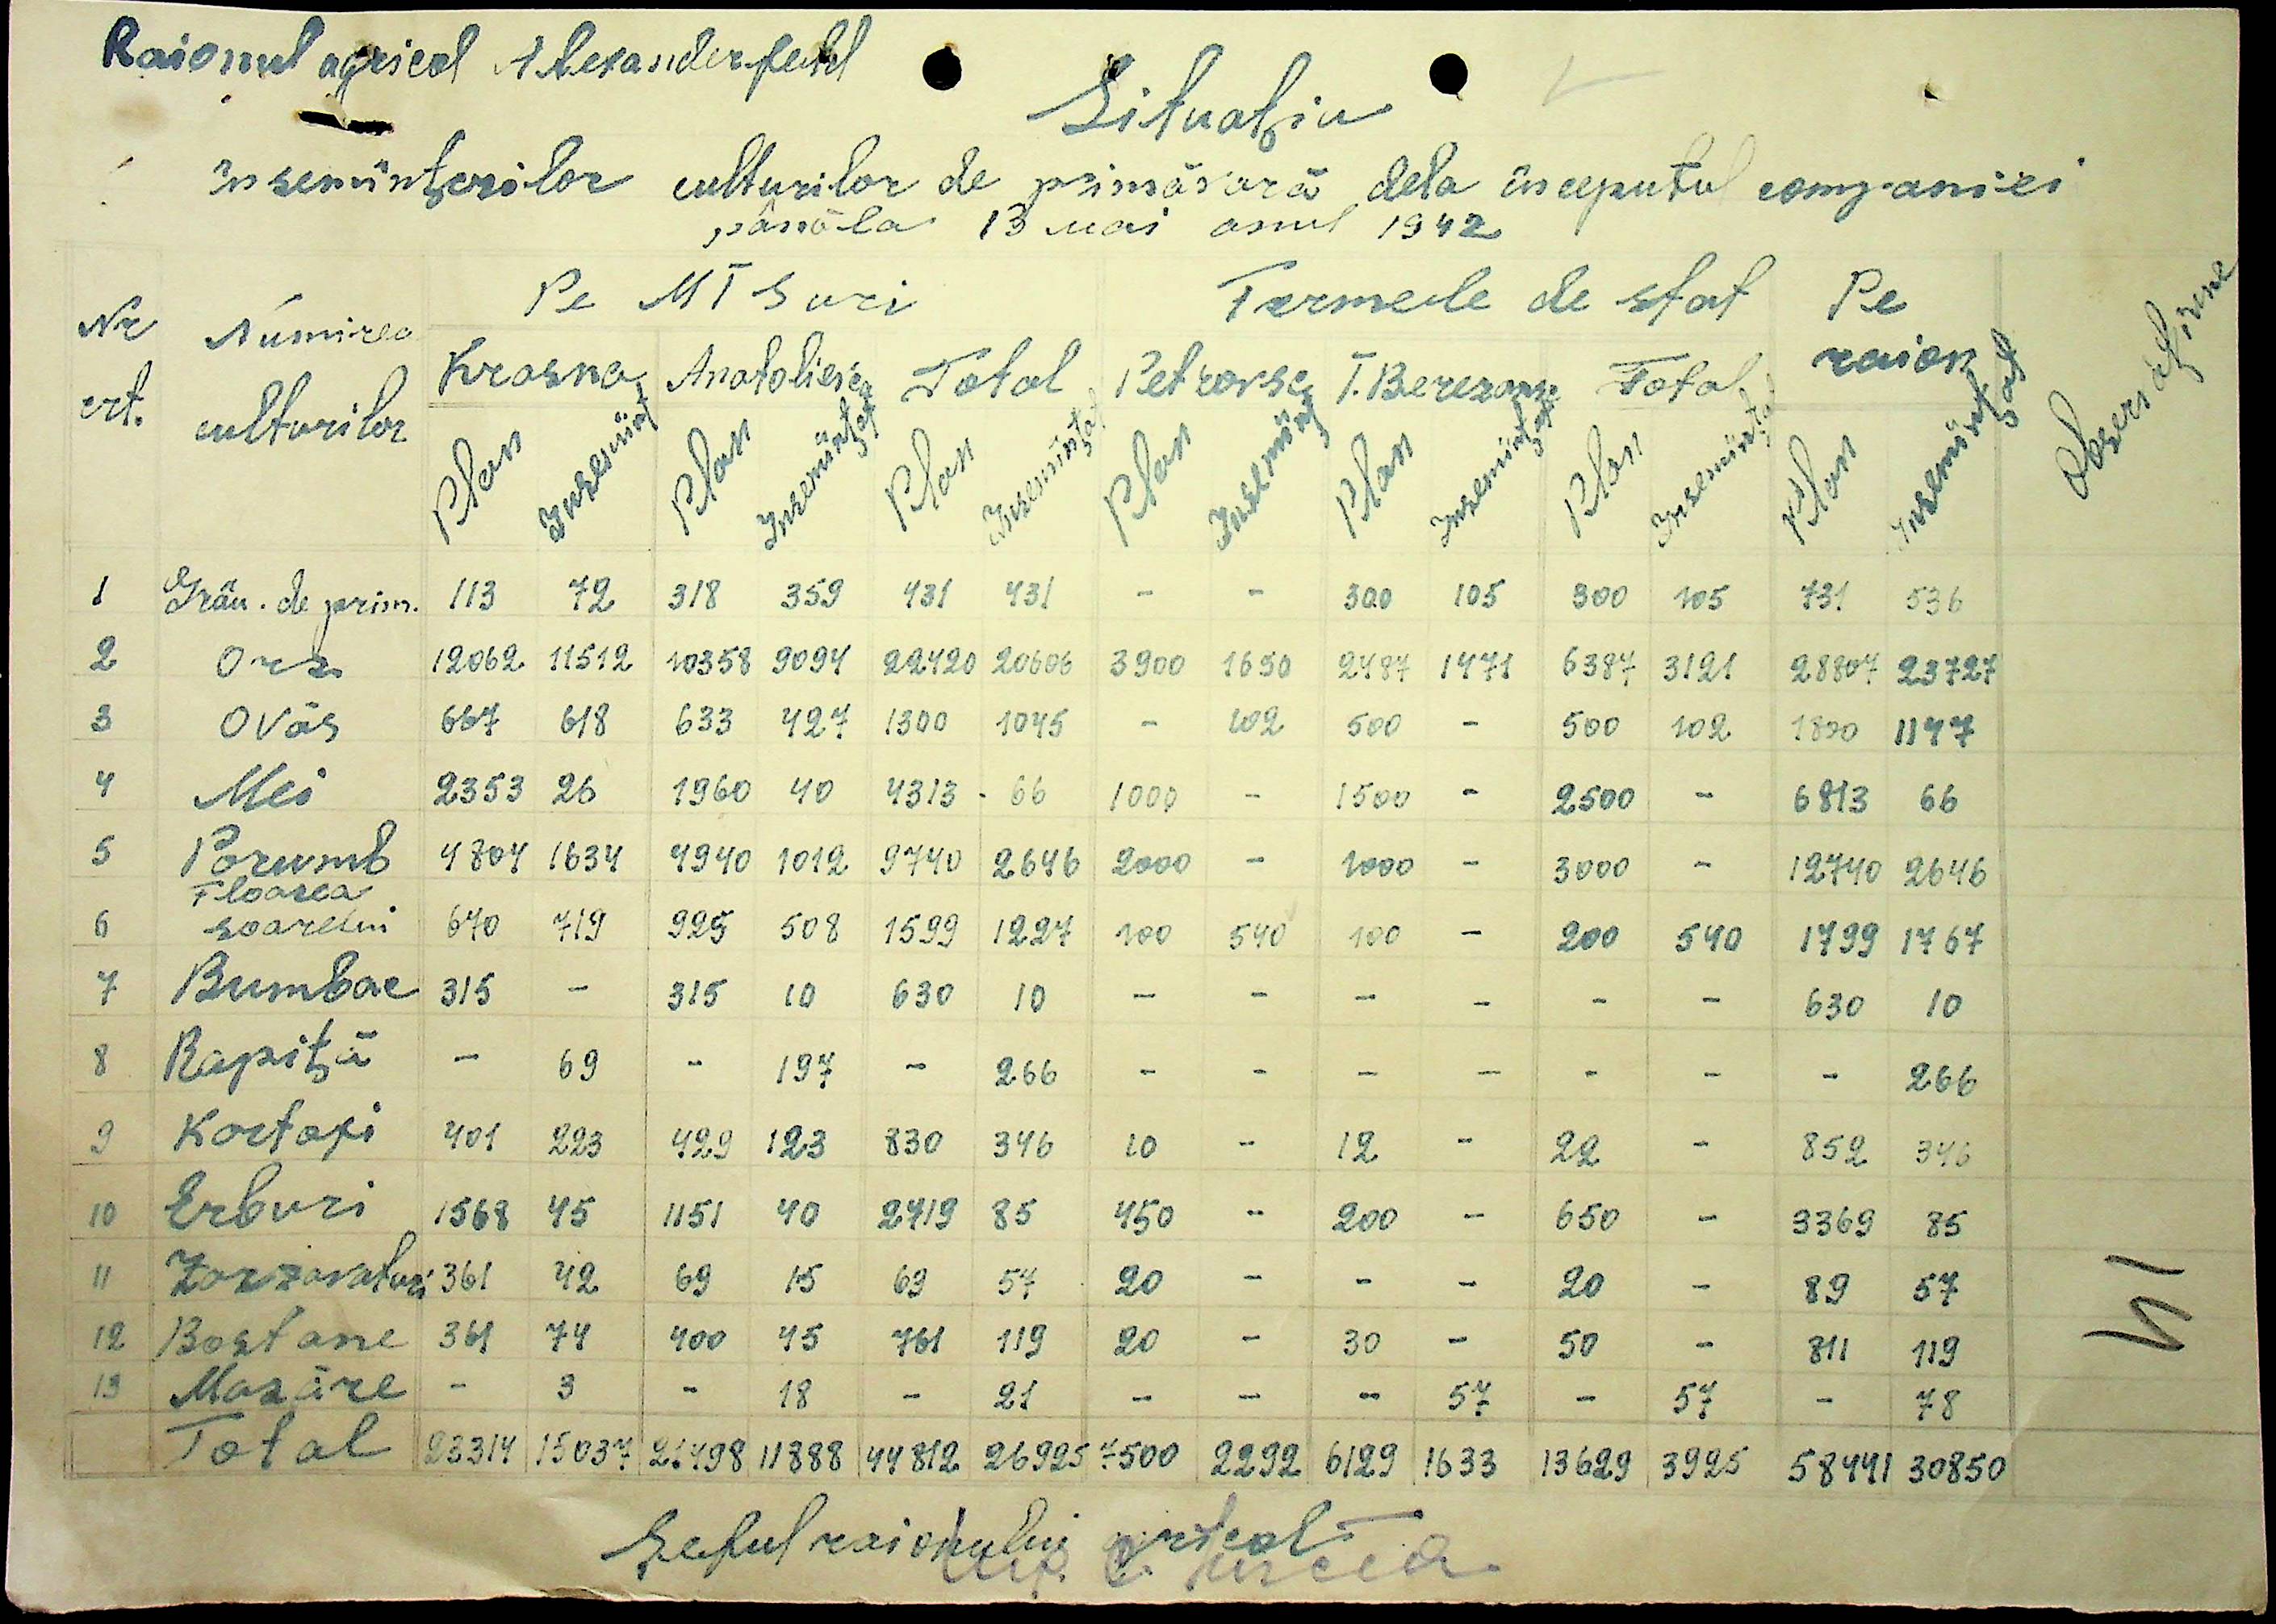 Raionul agricol Alexanderfeld
Situatia
însemînțerilor culturilor de primăvară dela începutul companiei
pânăla 13 mai anul 1942
Nr crt. Numirea culturilor Pe MTSuri Fermele de stat Pe raion Observațiune
Krasna Anatoliesca Total Petrovsc T.Berezansc Total
Plan Insemînț Plan Insemînțat Plan Insemînțat Plan Insemînț Plan Insemînțat Plan Insemînțat Plan Insemînțat
1 Grâu. de prim. 113 72 318 359 431 431 - - 300 105 300 105 731 536
2 Orz 12062 11512 10358 9094 22420 20606 3900 1650 2487 1471 6387 3121 28807 23727
3 Ovăs 667 618 633 427 1300 1045 - 102 500 - 500 102 1800 1147
4 Mei 2353 26 1960 40 4313 - 66 1000 - 1500 - 2500 - 6813 66
5 Porumb 4804 1634 4940 1012 9740 2646 2000 - 1000 - 3000 - 12740 2646
6 Floarea soarelui 670 719 925 508 1599 1227 100 540 100 - 200 540 1799 1767
7 Bumbac 315 - 315 10 630 10 - - - - - - 630 10
8 Rapiță - 69 - 197 - 266 - - - - - - - 266
9 Kartofi 401 223 429 123 830 346 10 - 12 - 22 - 852 346
10 Erburi 1568 45 1151 40 2719 85 450 - 200 - 650 - 3369 85
11 Zarzavaturi 361 42 69 15 69 57 20 - - - 20 - 89 57
12 Bostane 361 74 400 45 761 119 20 - 30 - 50 - 811 119
13 Mazăre - 3 - 18 - 21 - - - 57 - 57 - 78
Total 23314 15037 21498 11888 44812 26925 7500 2292 6129 1633 13629 3925 58441 30850
Șeful raionului agricol